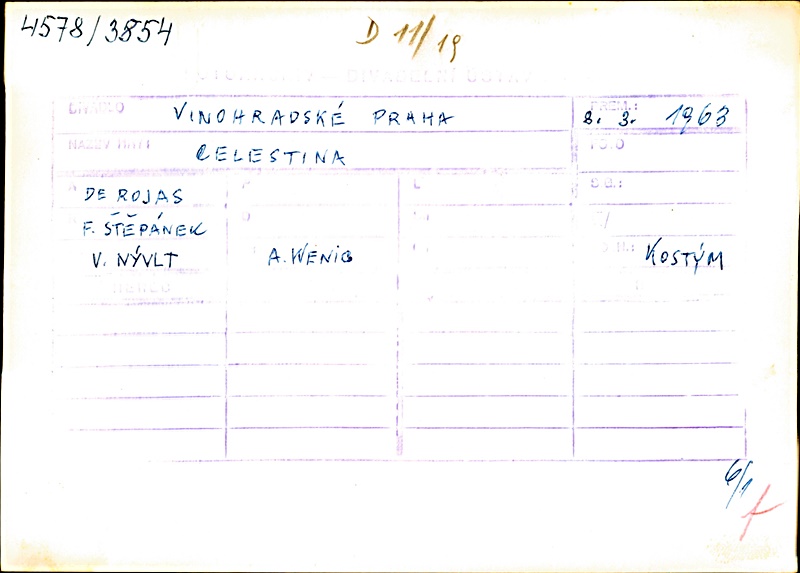 4578/3854
D 11/19
DIVADLO VINOHRADSKÉ PRAHA PREM.: 8. 3. 1963
NÁZEV HRY: CELESTINA
A DE ROJAS
F. ŠTĚPÁNEK
V. NÝVLT A. WENIG KOSTÝM
6/1